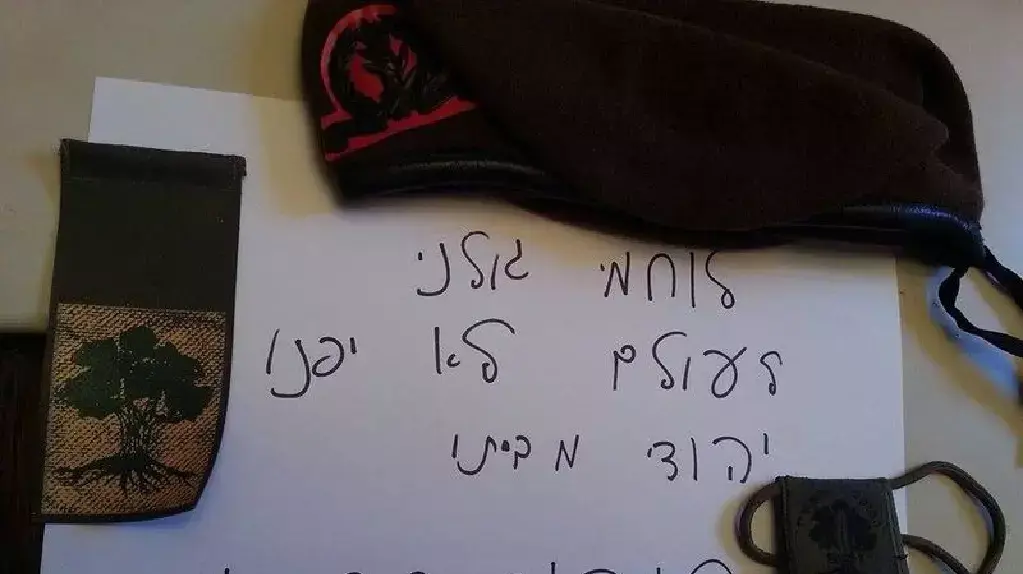 לוחמי גולני
לעולם לא יפנו
יהודי מביתו